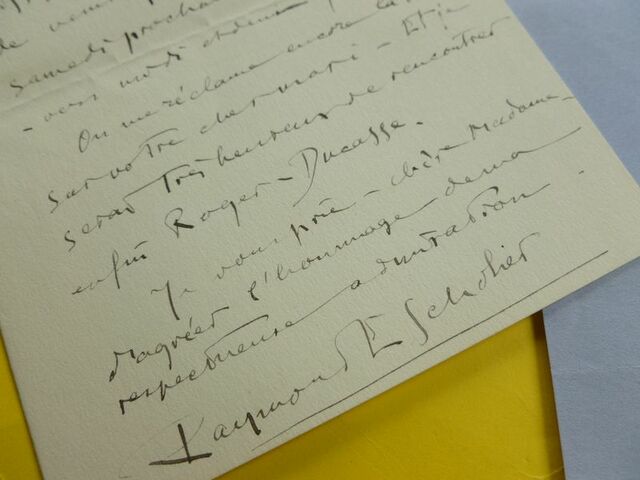 de venir
samedi prochain
- vers midi et demi !
On me réclame encore la
sur votre cher mari - Et je
serai très heureux de rencontrer
enfin Roger-Ducasse.
Je vous prie - chère Madame -
d'agréer l'hommage de ma
respectueuse admiration.
Raymond Escholier